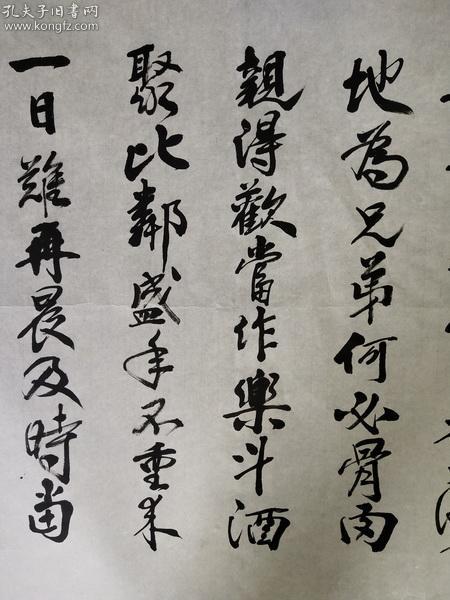 孔夫子旧书网
www.kongfz.com
地為兄弟何必骨肉
親得歡當作樂斗酒
聚比鄰盛年不重来
一日難再晨及時當